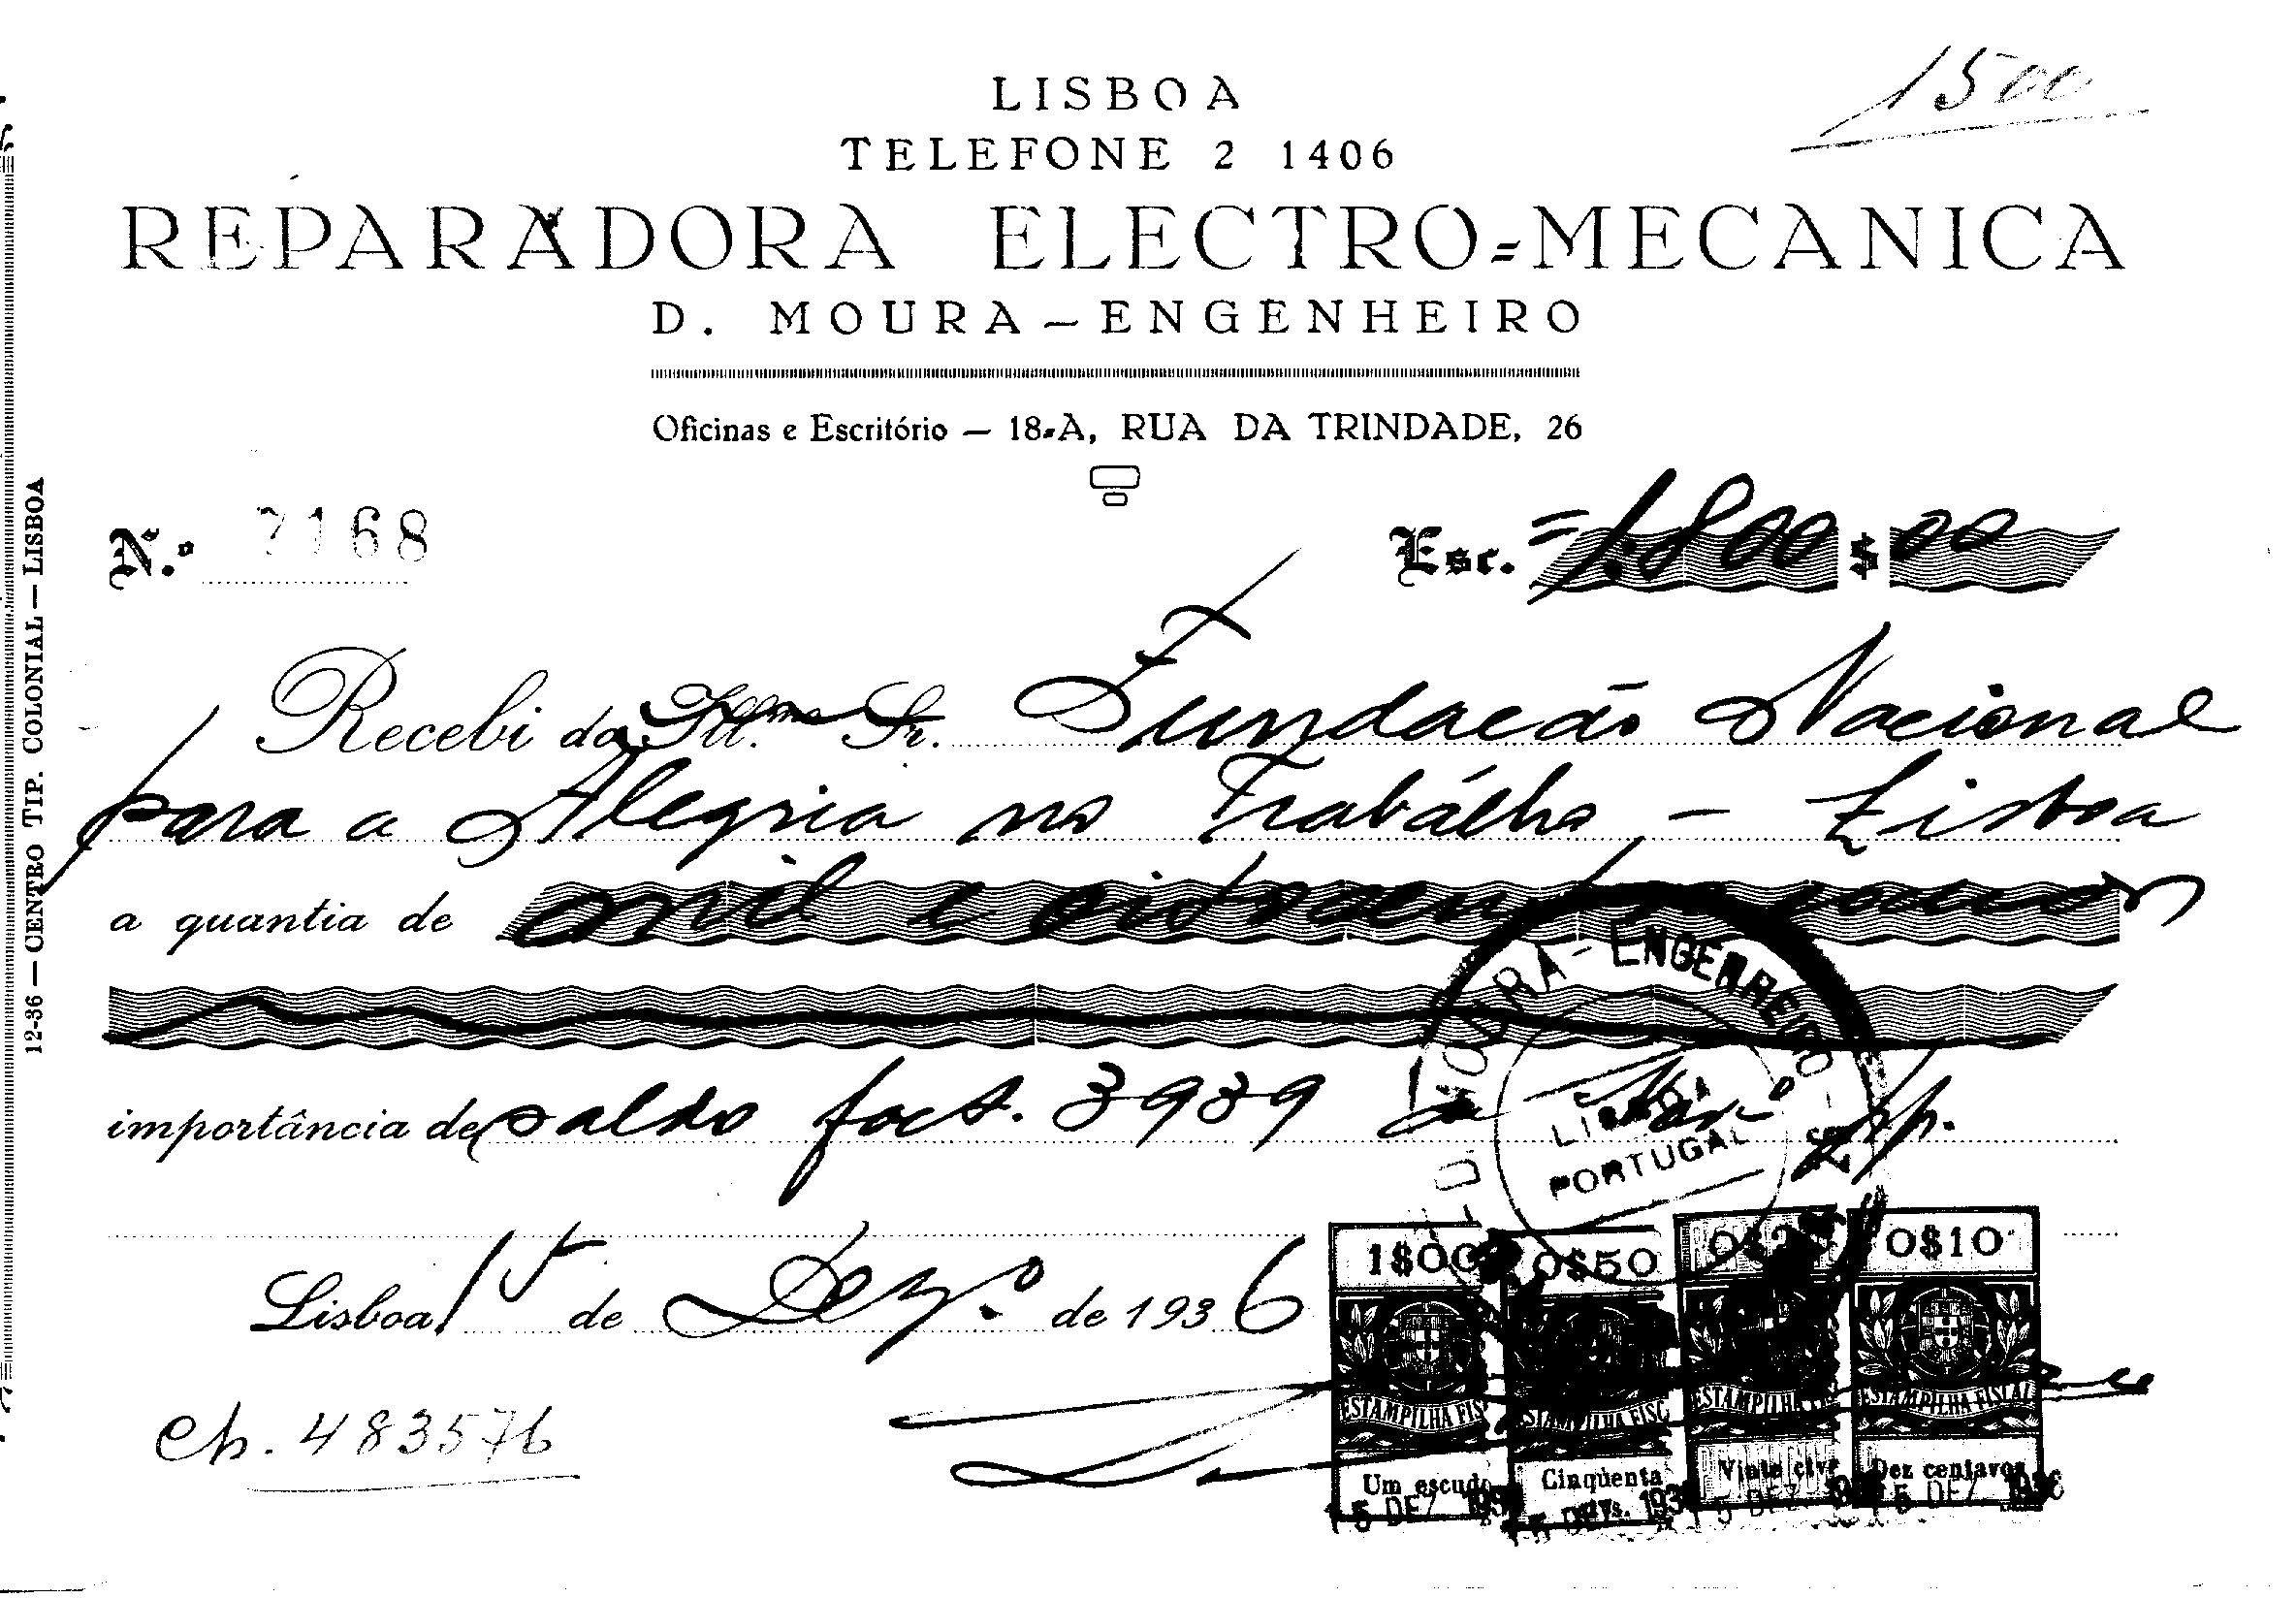 1500
LISBOA
TELEFONE 2 1406
REPARADORA ELECTRO=MECANICA
D. MOURA — ENGENHEIRO
Oficinas e Escritório — 18-A, RUA DA TRINDADE, 26
N.º 7168
Esc. =1.800$00
Recebi da Ill.mo Sr. Fundacão Nacional
para a Alegria no Trabálho, — Lisboa
a quantia de mil e oitocentos escudos
importância de saldo fact. 3939
Lisboa, 15 de Dez.º de 1936
ch. 483576
12-36 — CENTRO TIP. COLONIAL — LISBOA
D. MOURA - ENGENHEIRO
LISBOA
PORTUGAL
1$00 0$50 0$20 0$10
ESTAMPILHA FIS ESTAMPILHA FISC ESTAMPILHA ESTAMPILHA FISCAL
Um escudo Cinqùenta ctvs. Vinte ctvs Dez centavos
15 DEZ. 1936 15 DEZ. 1936 15 DEZ. 1936 15 DEZ. 1936